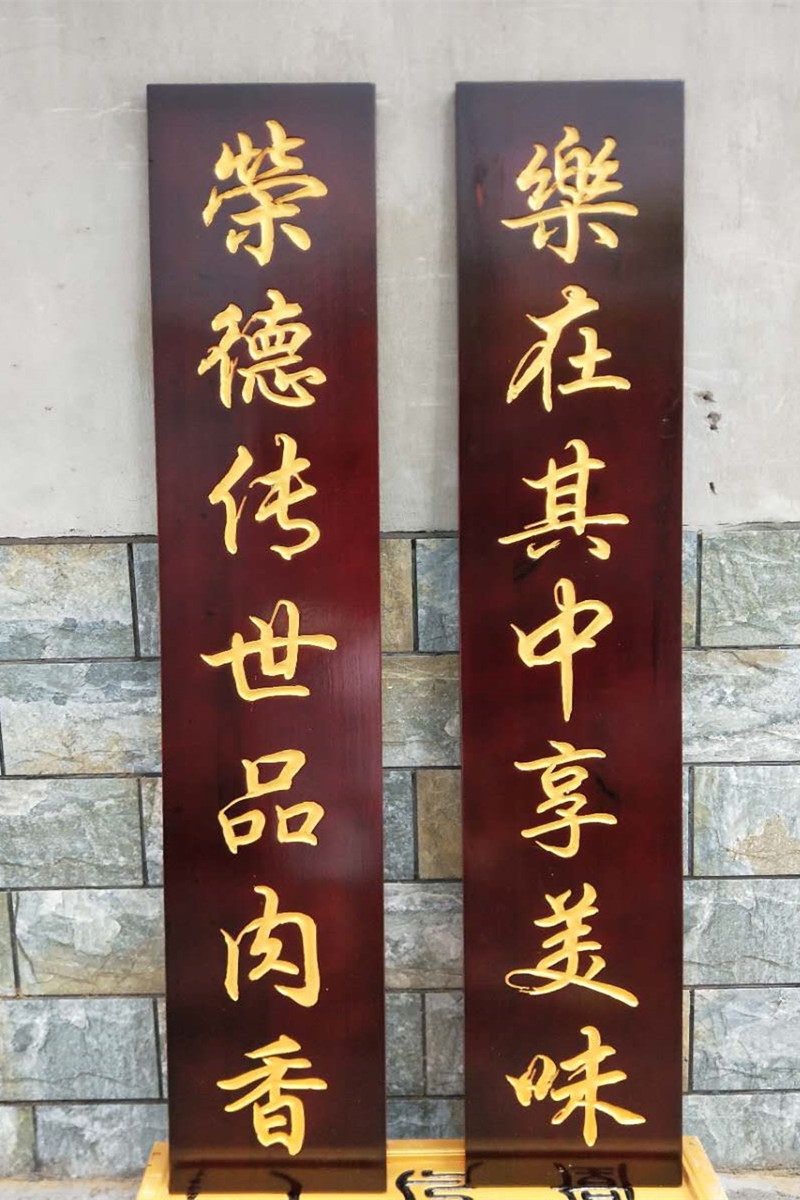 樂在其中享美味
榮德传世品肉香